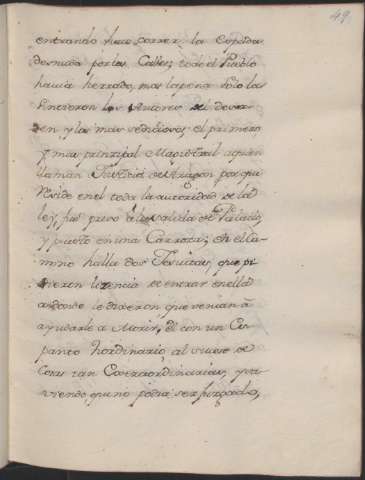 49.
entrando hace correr la Espada
desnuda por las Calles; todo el Pueblo
havia herrado, mas la pena solo la
sintieron los Autores del desor-
den y los mas sediciosos; el primero
y mas principal Magistral a quien
llaman Justicia de Aragon por que
reside en el toda la autoridad de la
ley, fue preso a la salida del Palacio,
y puesto en una Carroza; en el ca-
mino halla dos Jesuitas, que pi-
dieron licencia de entrar en ella
adonde le dixeron que venian a
ayudarle a Morir, el con un Es-
panto hordinario al suceso de
Cosas tan Extraordinarias, y no
viendo, que no podia ser juzgado,